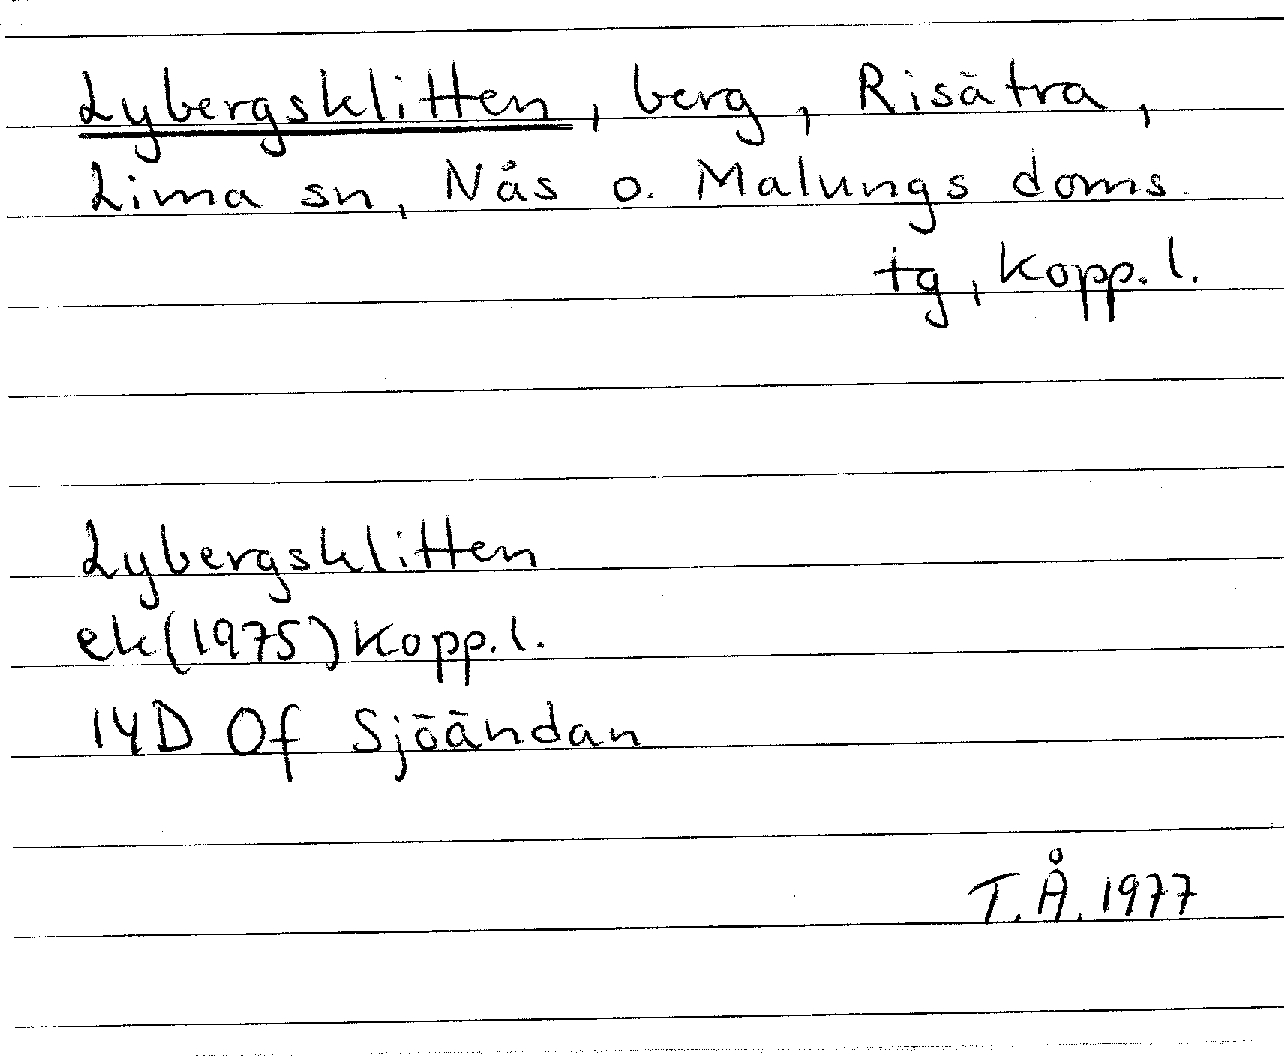 Lybergsklitten, berg, Risätra,
Lima sn, Nås o. Malungs doms
tg, Kopp.l.
Lybergsklitten
ek(1975)Kopp.l.
14D Of Sjöändan
T.Å. 1977